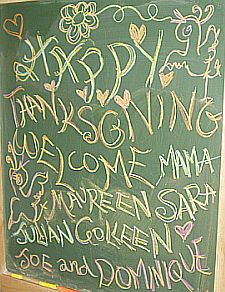 HAPPY
THANKSGIVING
WELCOME MAMA
MAUREEN SARA
JULIAN COLLEEN
JOE and DOMINIQUE